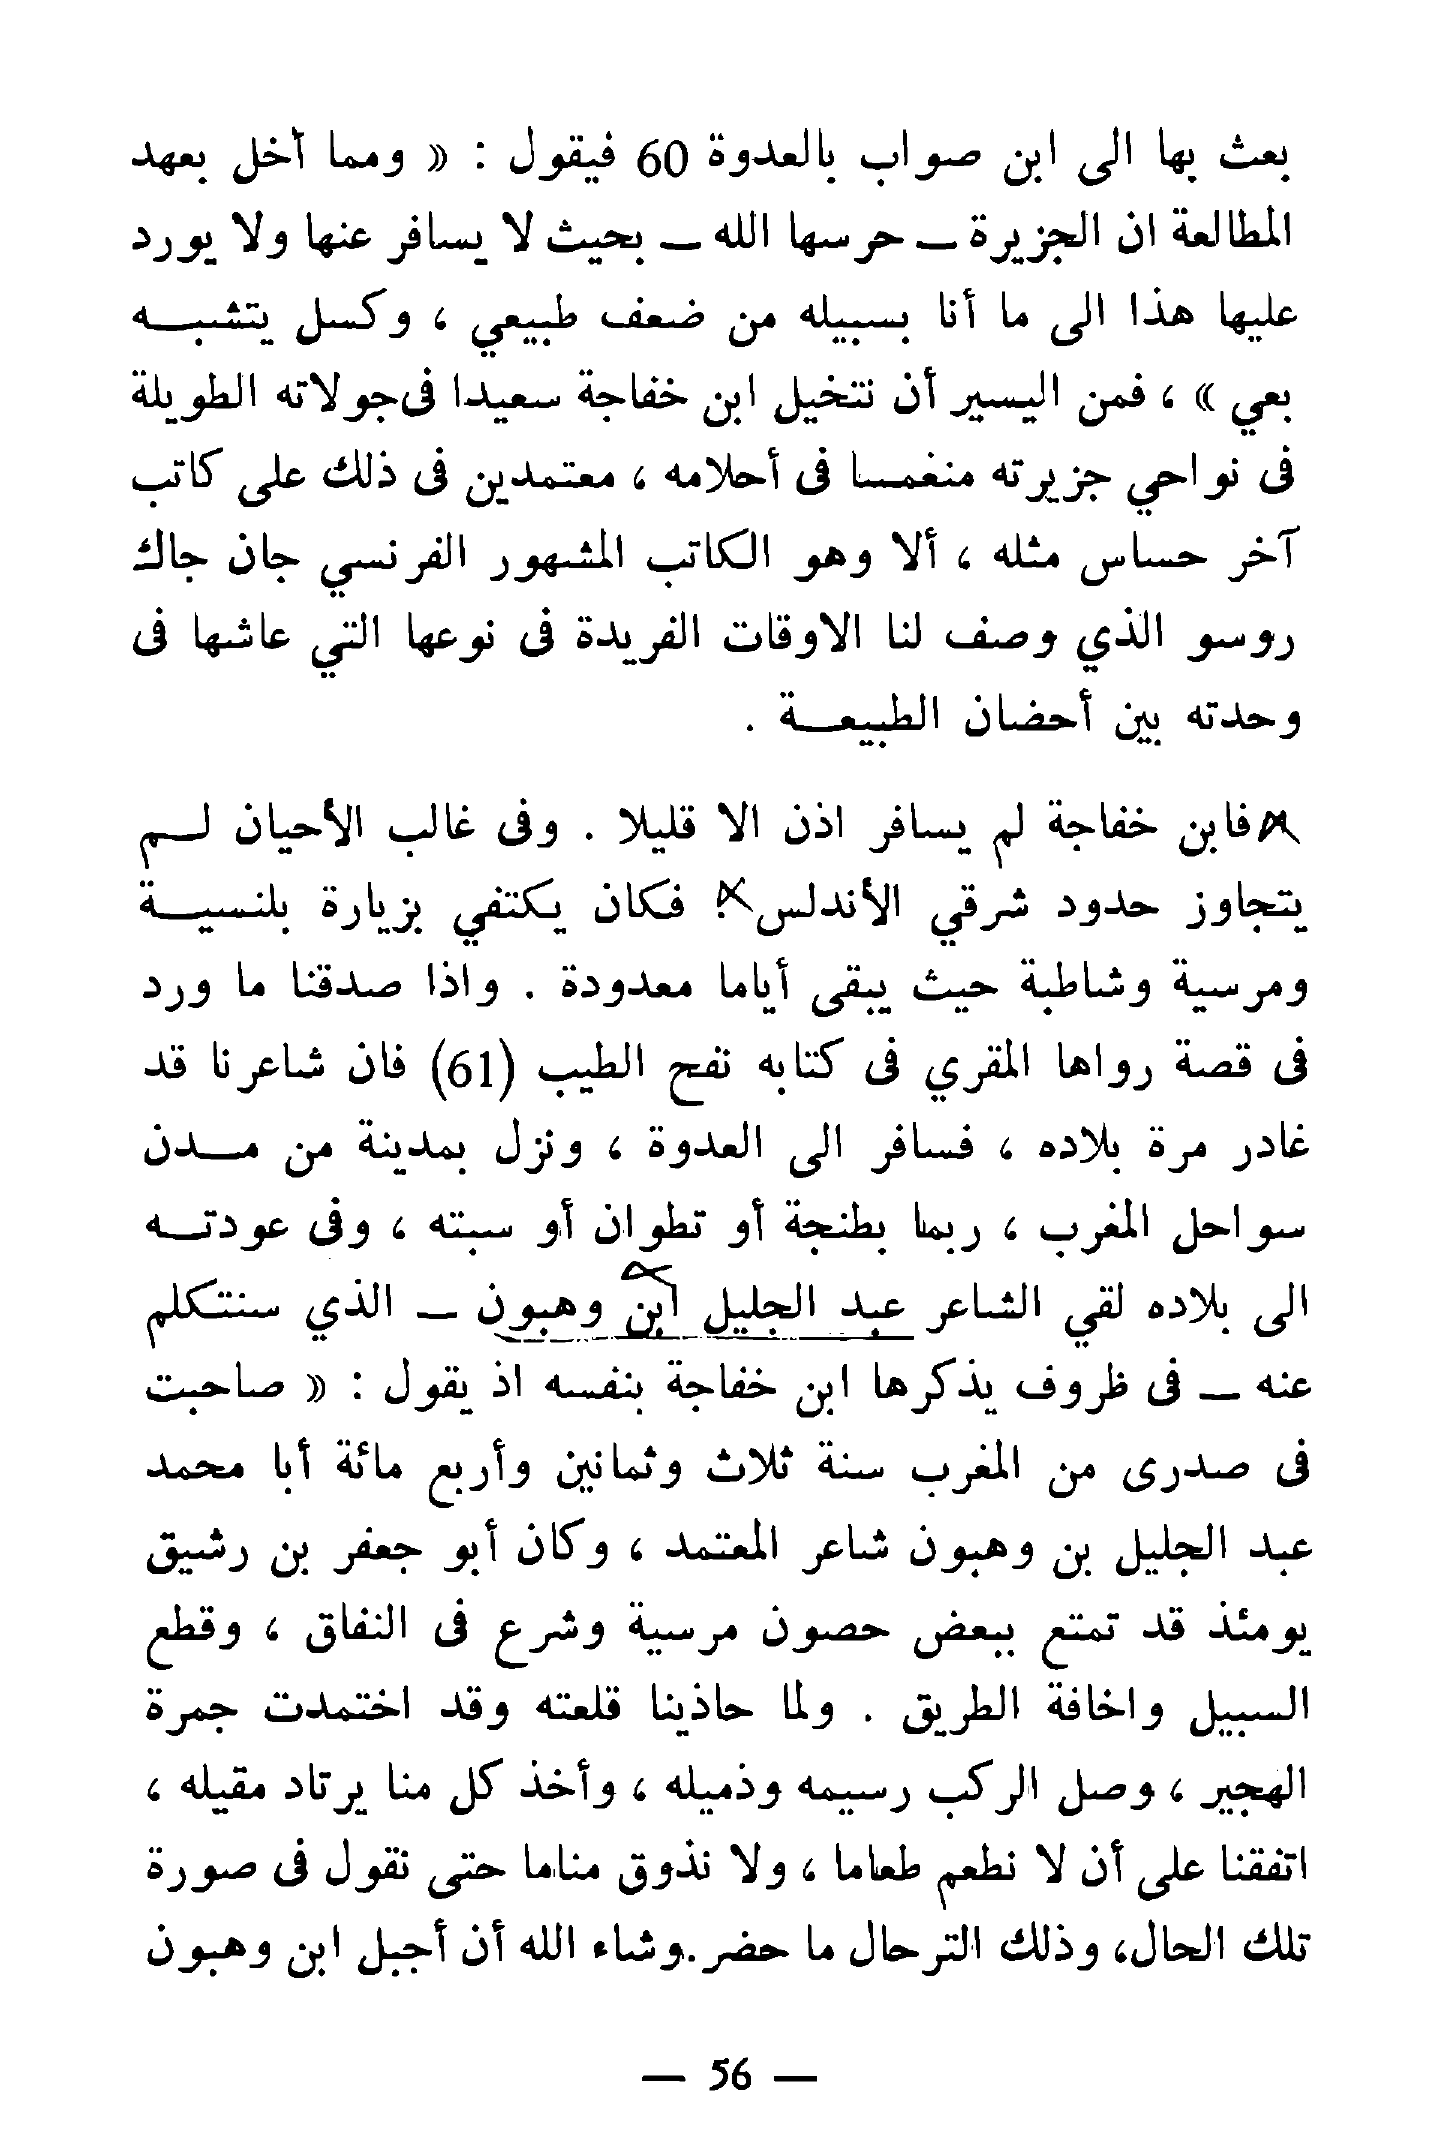 بعث بها الى ابن صواب بالعدوة 60 فيقول : « ومما أخل بعهد
المطالعة ان الجزيرة — حرسها الله — بحيث لا يسافر عنها ولا يورد
عليها هذا الى ما أنا بسبيله من ضعف طبيعي ، وكسل يتشبه
بعي » ، فمن اليسير أن نتخيل ابن خفاجة سعيدا فى جولاته الطويلة
فى نواحي جزيرته منغمسا فى أحلامه ، معتمدين فى ذلك على كاتب
آخر حساس مثله ، ألا وهو الكاتب المشهور الفرنسي جان جاك
روسو الذي وصف لنا الاوقات الفريدة فى نوعها التي عاشها فى
وحدته بين أحضان الطبيعة .
فابن خفاجة لم يسافر اذن الا قليلا . وفى غالب الأحيان لم
يتجاوز حدود شرقي الأندلس فكان يكتفي بزيارة بلنسية
ومرسية وشاطبة حيث يبقى أياما معدودة . واذا صدقنا ما ورد
فى قصة رواها المقري فى كتابه نفح الطيب (61) فان شاعرنا قد
غادر مرة بلاده ، فسافر الى العدوة ، ونزل بمدينة من مدن
سواحل المغرب ، ربما بطنجة أو تطوان أو سبته ، وفى عودته
الى بلاده لقي الشاعر عبد الجليل ابن وهبون — الذي سنتكلم
عنه — فى ظروف يذكرها ابن خفاجة بنفسه اذ يقول : « صاحبت
فى صدرى من المغرب سنة ثلاث وثمانين وأربع مائة أبا محمد
عبد الجليل بن وهبون شاعر المعتمد ، وكان أبو جعفر بن رشيق
يومئذ قد تمتع ببعض حصون مرسية وشرع فى النفاق ، وقطع
السبيل واخافة الطريق . ولما حاذينا قلعته وقد اختمدت جمرة
الهجير ، وصل الركب رسيمه وذميله ، وأخذ كل منا يرتاد مقيله ،
اتفقنا على أن لا نطعم طعاما ، ولا نذوق مناما حتى نقول فى صورة
تلك الحال، وذلك الترحال ما حضر. وشاء الله أن أجبل ابن وهبون
— 56 —